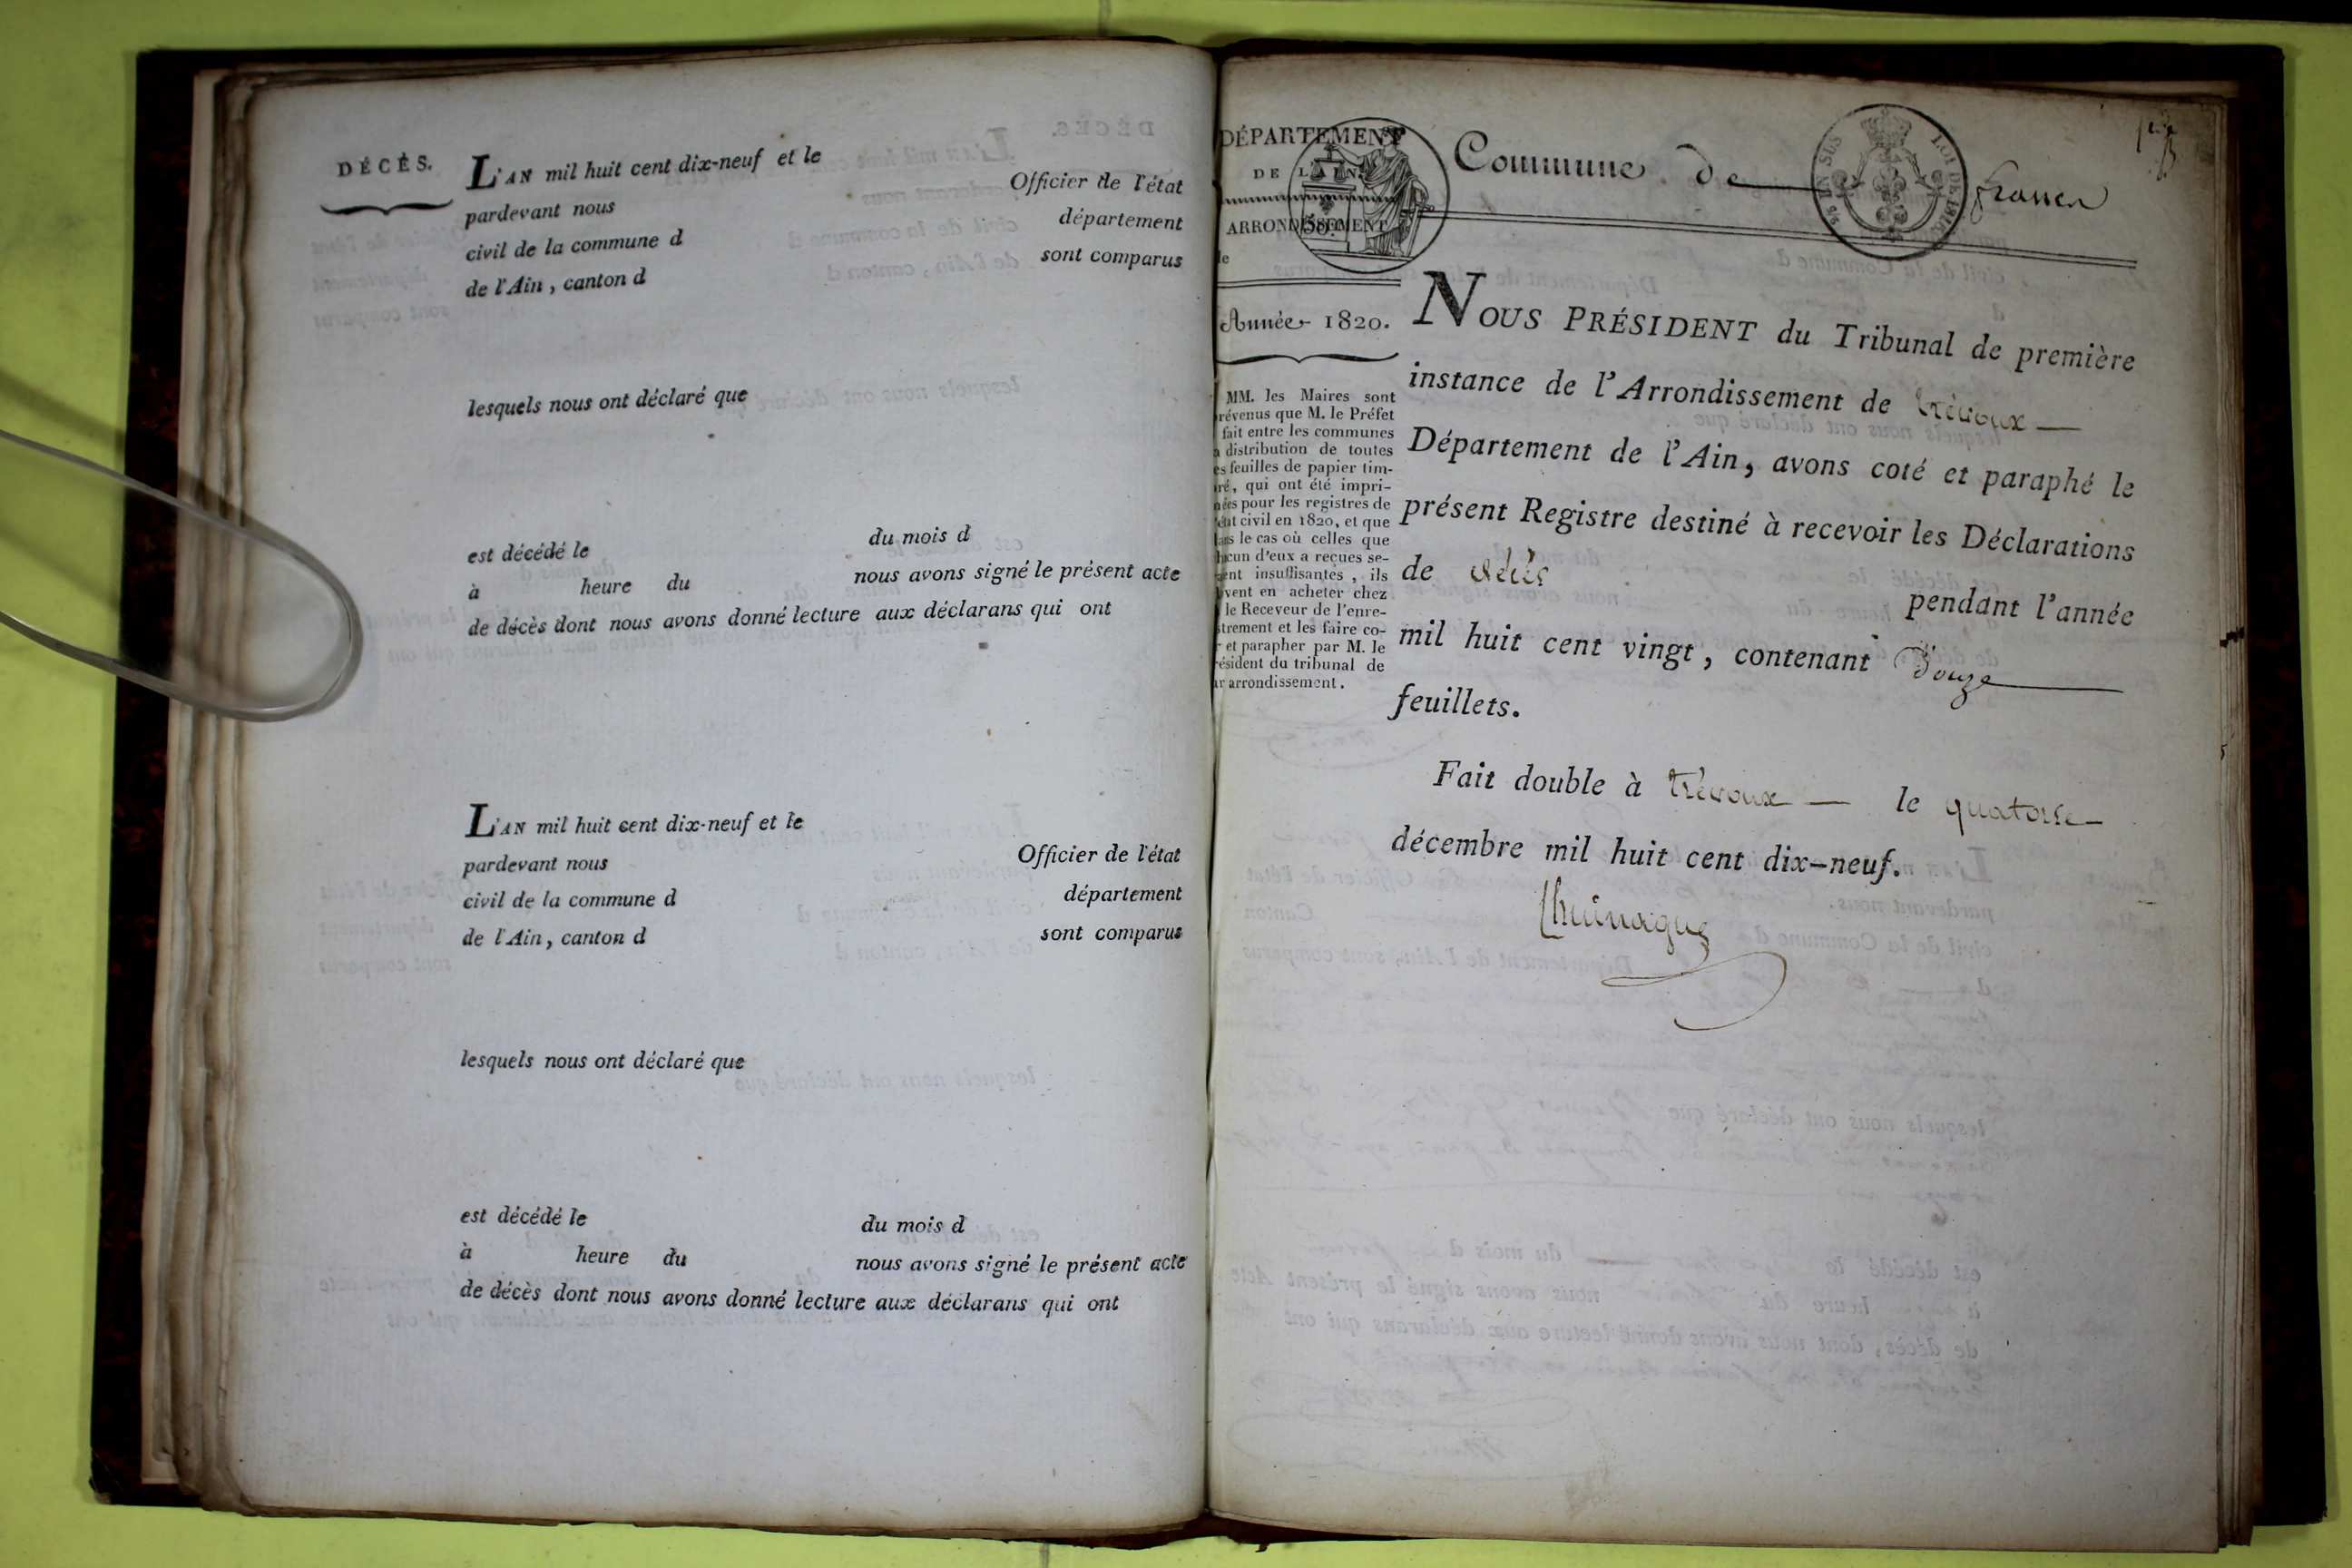 DÉCÈS.
L'AN mil huit cent dix-neuf et le
pardevant nous Officier de l'état
civil de la commune d département
de l'Ain, canton d sont comparus
lesquels nous ont déclaré que
est décédé le du mois d
à heure du nous avons signé le présent acte
de décès dont nous avons donné lecture aux déclarans qui ont
L'AN mil huit cent dix-neuf et le
pardevant nous Officier de l'état
civil de la commune d département
de l'Ain, canton d sont comparus
lesquels nous ont déclaré que
est décédé le du mois d
à heure du nous avons signé le présent acte
de décès dont nous avons donné lecture aux déclarans qui ont
DÉPARTEMENT
DE L'AIN
ARRONDISSEMENT
Année 1820.
MM. les Maires sont
prévenus que M. le Préfet
fait entre les communes
distribution de toutes
feuilles de papier tim-
, qui ont été impri-
pour les registres de
civil en 1820, et que
le cas où celles que
d'eux a reçues se-
insuffisantes, ils
en acheter chez
le Receveur de l'enre-
et les faire co-
et parapher par M. le
du tribunal de
arrondissement.
Commune de francen
NOUS PRÉSIDENT du Tribunal de première
instance de l'Arrondissement de trévoux
Département de l'Ain, avons coté et paraphé le
présent Registre destiné à recevoir les Déclarations
de décès pendant l'année
mil huit cent vingt, contenant Douze
feuillets.
Fait double à trévoux le quatorze
décembre mil huit cent dix-neuf.